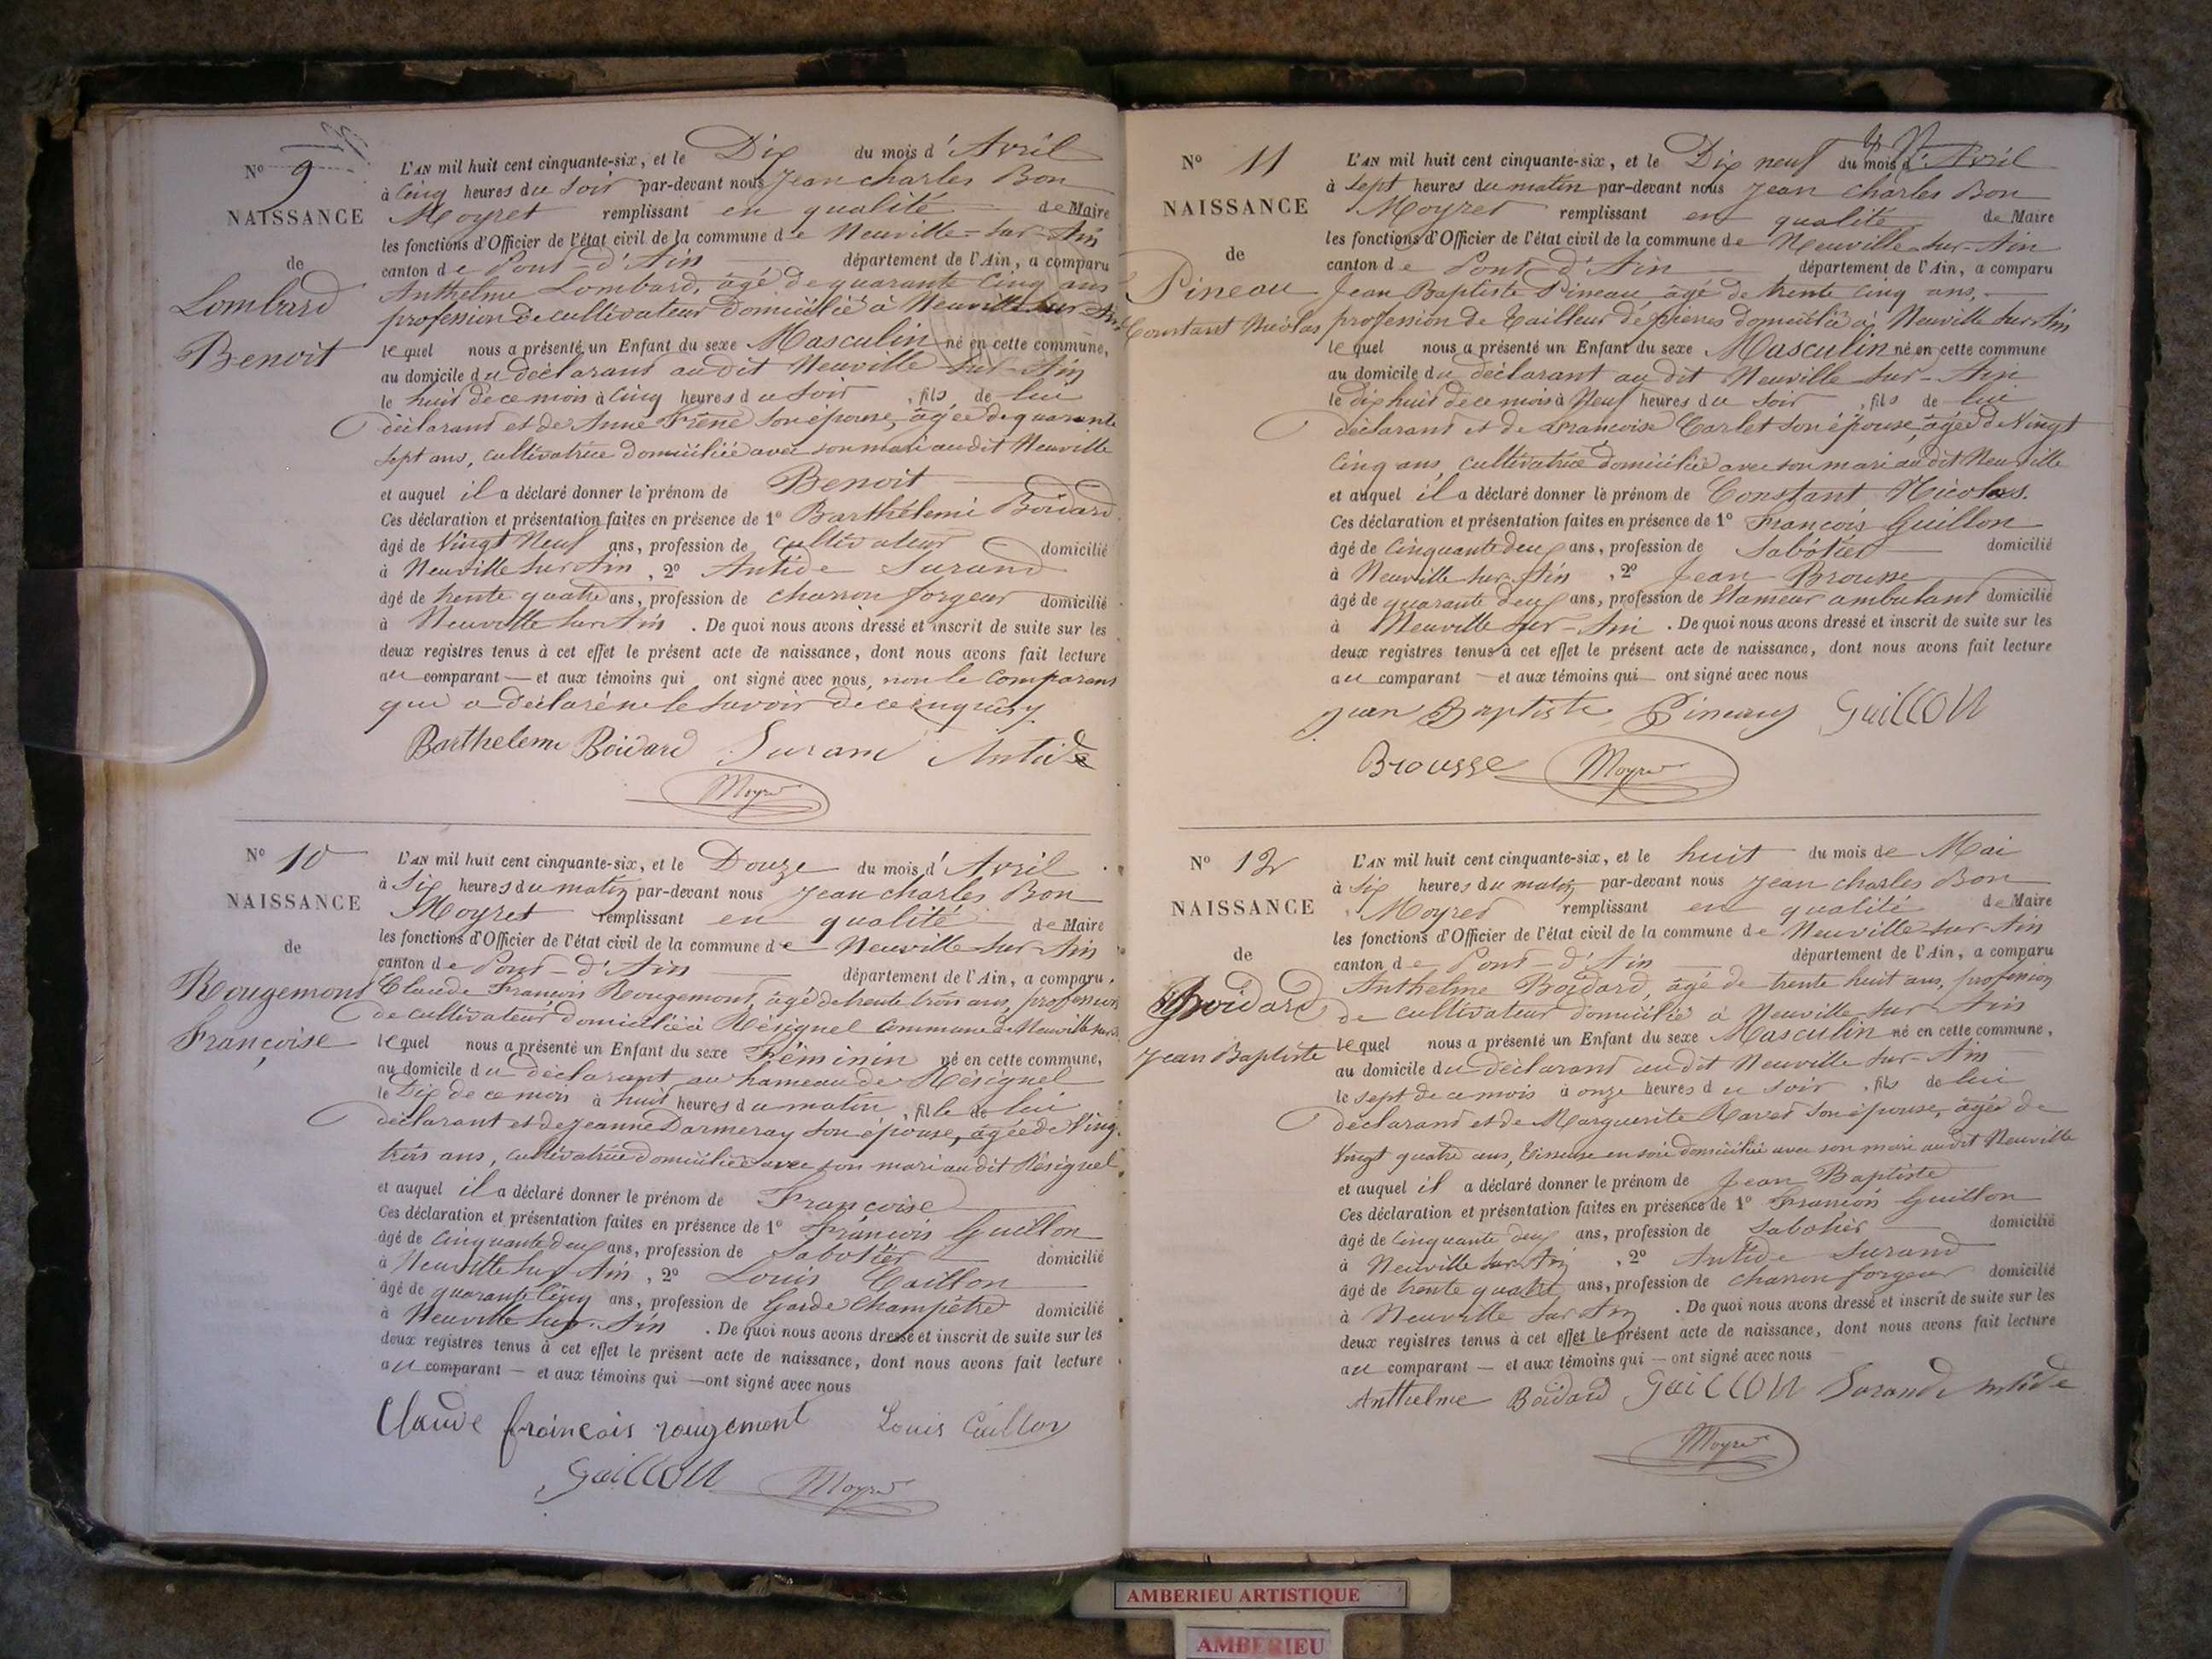 N° 9
NAISSANCE
de
Lombard
Benoit
L'AN mil huit cent cinquante-six, et le Dix du mois d'Avril
à cinq heures du soir par-devant nous Jean Charles Bon
Moyret remplissant en qualité de Maire
les fonctions d'Officier de l'état civil de la commune de Neuville-sur-Ain
canton de Pont-d'Ain département de l'Ain, a comparu
Anthelme Lombard, âgé de quarante cinq ans
profession de cultivateur domicilié à Neuville sur Ain
lequel nous a présenté un Enfant du sexe Masculin né en cette commune,
au domicile du déclarant audit Neuville sur-Ain
le huit de ce mois à cinq heures du soir, fils de lui
déclarant et de Anne Frêne son épouse, âgée de quarante
sept ans, cultivatrice domiciliée avec son mari audit Neuville
et auquel il a déclaré donner le prénom de Benoit
Ces déclaration et présentation faites en présence de 1° Barthélemi Boidard
âgé de Vingt Neuf ans, profession de cultivateur domicilié
à Neuville sur Ain, 2° Antide Surand
âgé de trente quatre ans, profession de charron forgeur domicilié
à Neuville sur Ain. De quoi nous avons dressé et inscrit de suite sur les
deux registres tenus à cet effet le présent acte de naissance, dont nous avons fait lecture
au comparant — et aux témoins qui ont signé avec nous, non le comparant
qui a déclaré ne le savoir de ce enquis
Barthelemi Boidard Surand Antide
Moyret
N° 10
NAISSANCE
de
Rougemont
Françoise
L'AN mil huit cent cinquante-six, et le Douze du mois d'Avril
à Six heures du matin par-devant nous Jean Charles Bon
Moyret remplissant en qualité de Maire
les fonctions d'Officier de l'état civil de la commune de Neuville sur Ain
canton de Pont-d'Ain département de l'Ain, a comparu
Claude François Rougemont, âgé de trente trois ans, profession
de cultivateur domicilié à Résignel Commune de Neuville sur
lequel nous a présenté un Enfant du sexe Féminin né en cette commune,
au domicile du déclarant au hameau de Résignel
le Dix de ce mois à huit heures du matin, fille de lui
déclarant et de Jeanne Darmeray son épouse, âgée de Vingt
trois ans, cultivatrice domiciliée avec son mari audit Résignel
et auquel il a déclaré donner le prénom de Françoise
Ces déclaration et présentation faites en présence de 1° François Guillon
âgé de cinquante deux ans, profession de Sabotier domicilié
à Neuville sur Ain, 2° Louis Caillon
âgé de quarante cinq ans, profession de Garde Champêtre domicilié
à Neuville sur-Ain. De quoi nous avons dressé et inscrit de suite sur les
deux registres tenus à cet effet le présent acte de naissance, dont nous avons fait lecture
au comparant — et aux témoins qui — ont signé avec nous
Claude françois rougemont Louis Caillon
Guillon Moyret
N° 11
NAISSANCE
de
Pineau
Constant Nicolas
L'AN mil huit cent cinquante-six, et le Dix neuf du mois d'Avril
à Sept heures du matin par-devant nous Jean Charles Bon
Moyret remplissant en qualité de Maire
les fonctions d'Officier de l'état civil de la commune de Neuville-sur-Ain
canton de Pont-d'Ain département de l'Ain, a comparu
Jean Baptiste Pineau âgé de trente cinq ans,
profession de tailleur de pierres domicilié à Neuville sur Ain
lequel nous a présenté un Enfant du sexe Masculin né en cette commune
au domicile du déclarant audit Neuville sur-Ain
le dix huit de ce mois à Neuf heures du soir, fils de lui
déclarant et de Françoise Carlet son épouse, âgée de Vingt
cinq ans, cultivatrice domiciliée avec son mari audit Neuville
et auquel il a déclaré donner le prénom de Constant Nicolas.
Ces déclaration et présentation faites en présence de 1° François Guillon
âgé de Cinquante deux ans, profession de Sabotier domicilié
à Neuville sur-Ain, 2° Jean Brousse
âgé de quarante deux ans, profession de Etameur ambulant domicilié
à Neuville sur-Ain. De quoi nous avons dressé et inscrit de suite sur les
deux registres tenus à cet effet le présent acte de naissance, dont nous avons fait lecture
au comparant — et aux témoins qui — ont signé avec nous
Jean Baptiste Pineau Guillon
Brousse Moyret
N° 12
NAISSANCE
de
Boidard
Jean Baptiste
L'AN mil huit cent cinquante-six, et le huit du mois de Mai
à Six heures du matin, par-devant nous Jean Charles Bon
Moyret remplissant en qualité de Maire
les fonctions d'Officier de l'état civil de la commune de Neuville-sur-Ain
canton de Pont-d'Ain département de l'Ain, a comparu
Anthelme Boidard, âgé de trente huit ans, profession
de cultivateur domicilié à Neuville sur Ain
lequel nous a présenté un Enfant du sexe Masculin né en cette commune,
au domicile du déclarant audit Neuville sur-Ain
le sept de ce mois à onze heures du soir, fils de lui
déclarant et de Marguerite Ravet son épouse, âgée de
Vingt quatre ans, tisseuse en soie domiciliée avec son mari audit Neuville
et auquel il a déclaré donner le prénom de Jean Baptiste
Ces déclaration et présentation faites en présence de 1° François Guillon
âgé de cinquante deux ans, profession de Sabotier domicilié
à Neuville sur Ain, 2° Antide Surand
âgé de trente quatre ans, profession de charron forgeur domicilié
à Neuville sur Ain. De quoi nous avons dressé et inscrit de suite sur les
deux registres tenus à cet effet le présent acte de naissance, dont nous avons fait lecture
au comparant — et aux témoins qui — ont signé avec nous
Anthelme Boidard Guillon Surand Antide
Moyret
AMBERIEU ARTISTIQUE
AMBERIEU